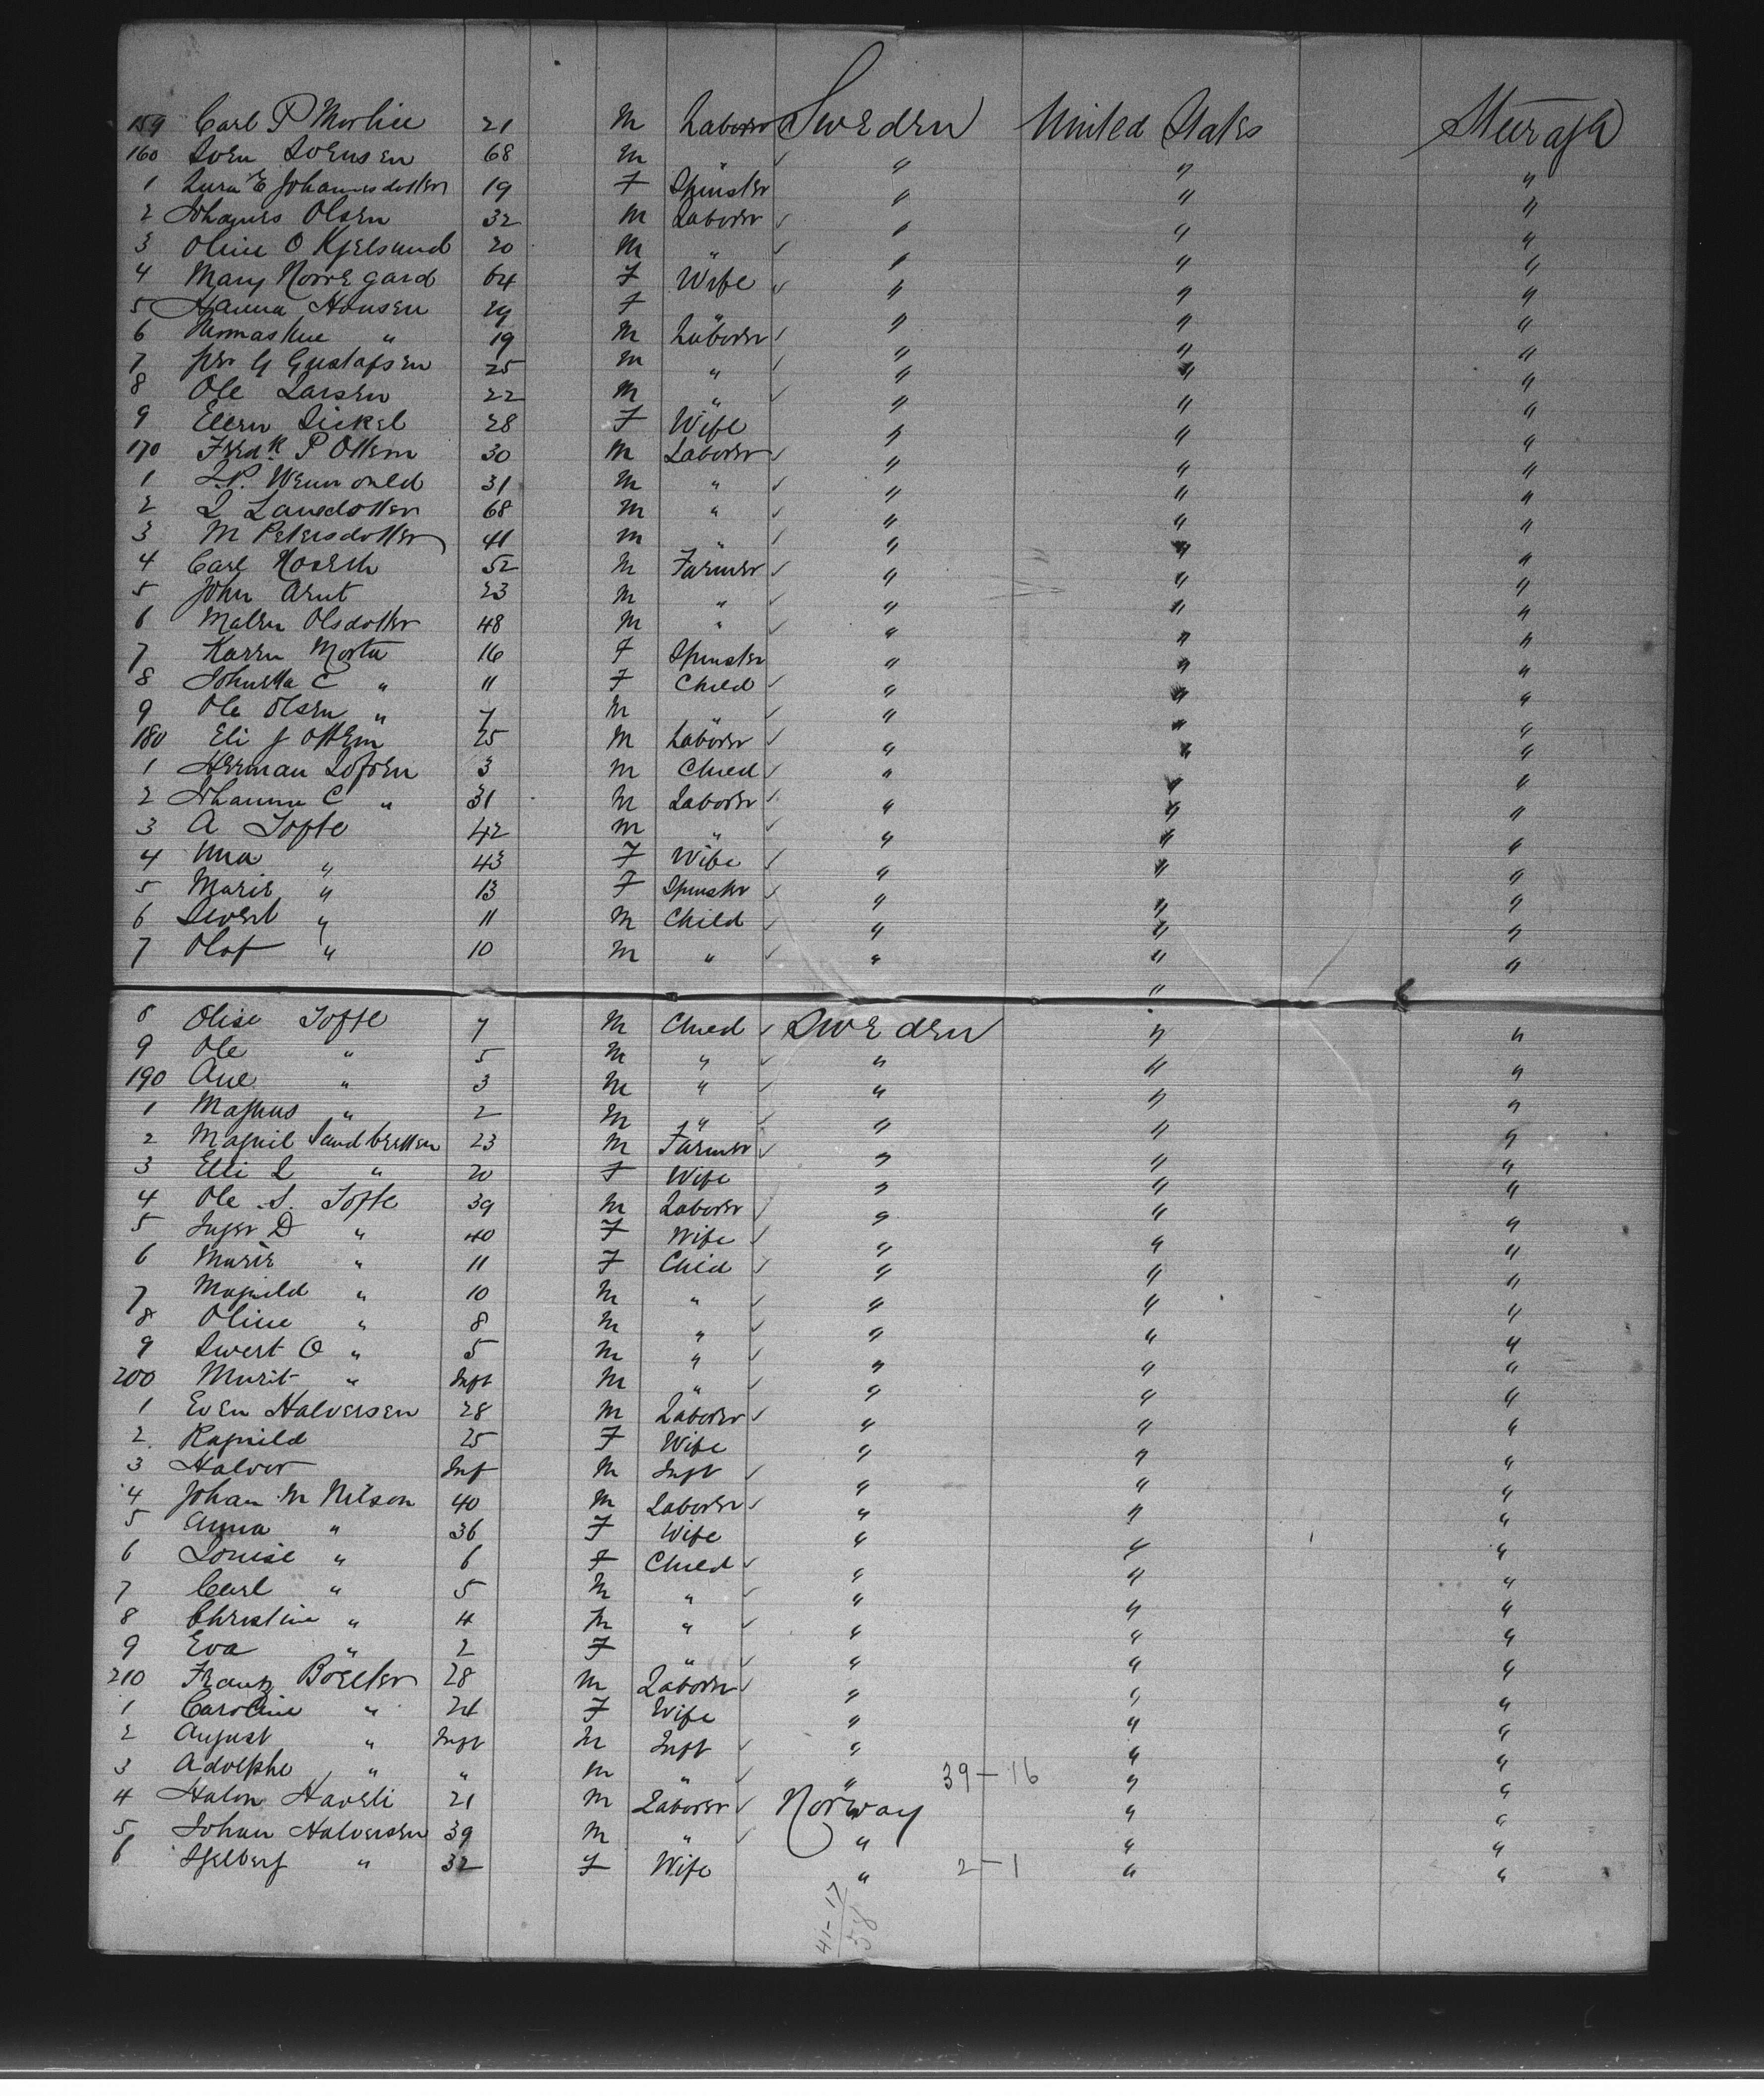 159 Carl P Morlin 21 M Laborer Sweden United States Steerage
160 Sven Svensen 68 M " " " "
1 Lura E Johannesdotter 19 F Spinster " " "
2 Johannes Olsen 32 M Laborer " " "
3 Oline O Kjelsund 20 M " " " "
4 Mary Norregard 64 F Wife " " "
5 Hanna Hansen 29 F " " " "
6 Thomasine " 19 M Laborer " " "
7 Per G Gustafsen 25 M " " " "
8 Ole Larsen 22 M " " " "
9 Elern Sickel 28 F Wife " " "
170 Fredk P Ottem 30 M Laborer " " "
1 L.P. 31 M " " " "
2 L Larsdotter 68 M " " " "
3 M Petersdotter 41 M " " " "
4 Carl 52 M Farmer " " "
5 John Arnt 23 M " " " "
6 Malen Olsdotter 48 M " " " "
7 Karen Morta 16 F Spinster " " "
8 Johnetta C " 11 F Child " " "
9 Ole Olsen " 7 M " " " "
180 Eli J Ottem 25 M Laborer " " "
1 Herman Lofven 3 M Child " " "
2 Johanna C " 31 M Laborer " " "
3 A Tofte 42 M " " " "
4 " 43 F Wife " " "
5 Marie " 13 F Spinster " " "
6 Sivert " 11 M Child " " "
7 Olof " 10 M " " " "
"
8 Olise Tofte 7 M Child Sweden " "
9 Ole " 5 M " " " "
190 Ane " 3 M " " " "
1 Magnus " 2 M " " " "
2 Magnil 23 M Farmer " " "
3 Elli L " 20 F Wife " " "
4 Ole S. Tofte 39 M Laborer " " "
5 Inger D " 40 F Wife " " "
6 Marie " 11 F Child " " "
7 Magnild " 10 M " " " "
8 Oline " 8 M " " " "
9 Sivert O " 5 M " " " "
200 Marit " Inft M " " " "
1 Even Halversen 28 M Laborer " " "
2 Ragnild 25 F Wife " " "
3 Halvor Inf M Inft " " "
4 Johan M Nilson 40 M Laborer " " "
5 Anna " 36 F Wife " " "
6 Louise " 6 F Child " " "
7 Carl " 5 M " " " "
8 Christine " 4 M " " " "
9 Eva " 2 F " " " "
210 Frantz Boelter 28 M Laborer " " "
1 Caroline " 24 F Wife " " "
2 August " Inft M Inft " " "
3 Adolphe " " M " " 39-16 " "
4 Halvn Haveli 21 M Laborer Norway " "
5 Johan Halversen 39 M " " " "
6 " 32 F Wife " 2-1 " "
41-17
58